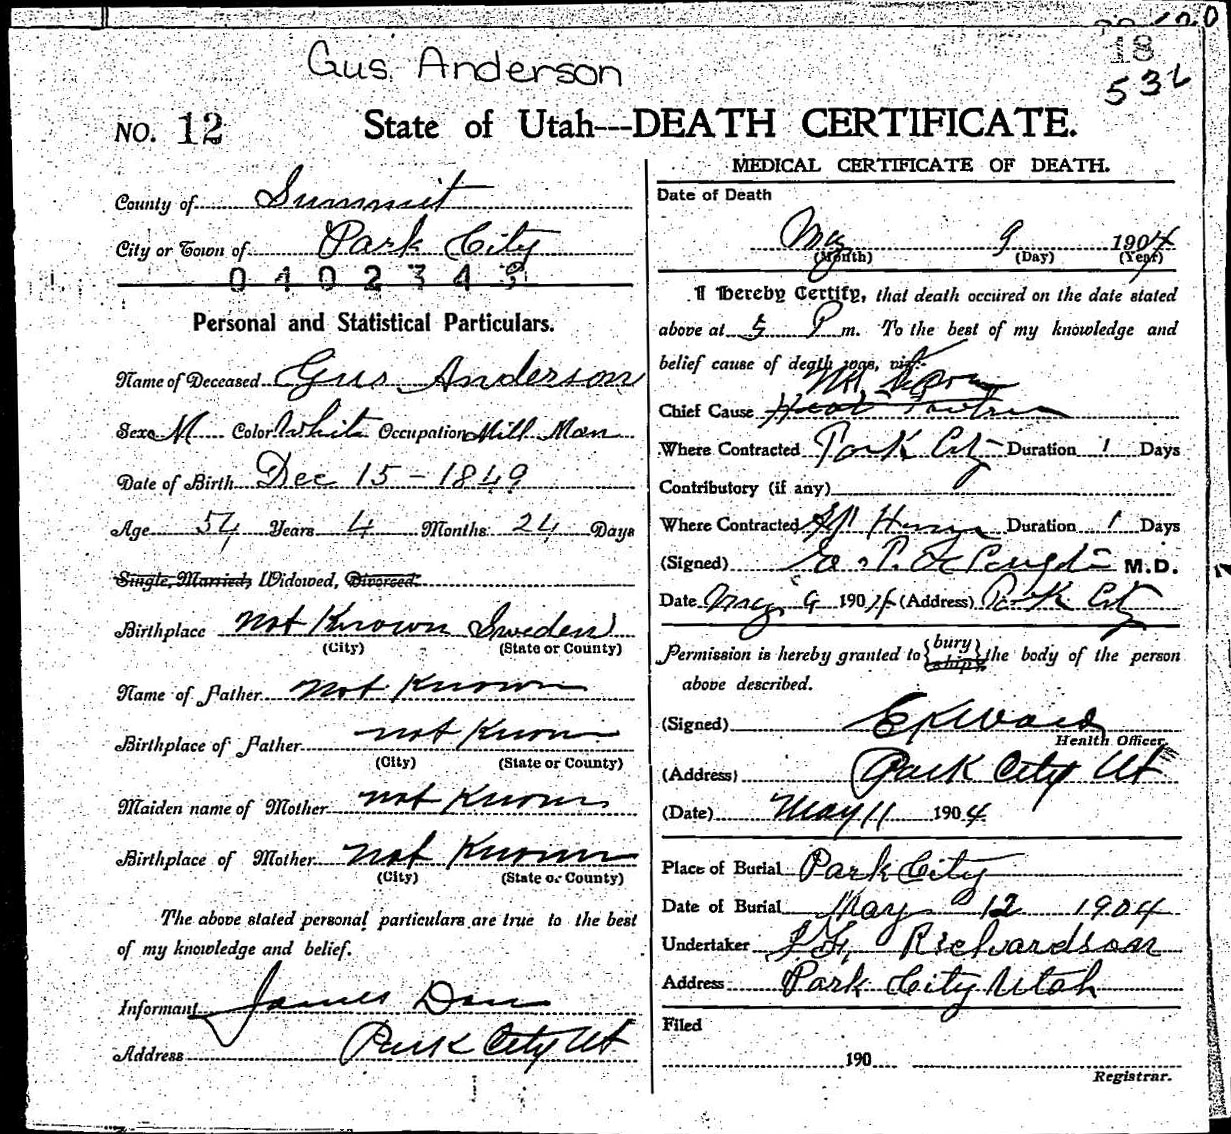 18
Gus Anderson
536
NO. 12 State of Utah---DEATH CERTIFICATE.
County of Summit
City or Town of Park City
0402343
Personal and Statistical Particulars.
Name of Deceased Gus Anderson
Sex M Color White Occupation Mill Man
Date of Birth Dec 15 - 1849
Age 54 Years 4 Months 24 Days
Single, Married, Widowed, Divorced
Birthplace not Known Sweden
(City) (State or County)
Name of Father not Known
Birthplace of Father not Known
(City) (State or County)
Maiden name of Mother not Known
Birthplace of Mother not Known
(City) (State or County)
The above stated personal particulars are true to the best
of my knowledge and belief.
Informant James Don
Address Park City Ut
MEDICAL CERTIFICATE OF DEATH.
Date of Death
May 9 1904
(Month) (Day) (Year)
I Hereby Certify, that death occured on the date stated
above at 5 P m. To the best of my knowledge and
belief cause of death was, viz:
Chief Cause
Where Contracted Park City Duration 1 Days
Contributory (if any)
Where Contracted Duration 1 Days
(Signed) M.D.
Date May 9 1904 (Address) Park City
Permission is hereby granted to {bury
ship} the body of the person
above described.
(Signed) E K Ward
Health Officer
(Address) Park City Ut
(Date) May 11 1904
Place of Burial Park City
Date of Burial May 12 1904
Undertaker Richardson
Address Park City Utah
Filed
190
Registrar.